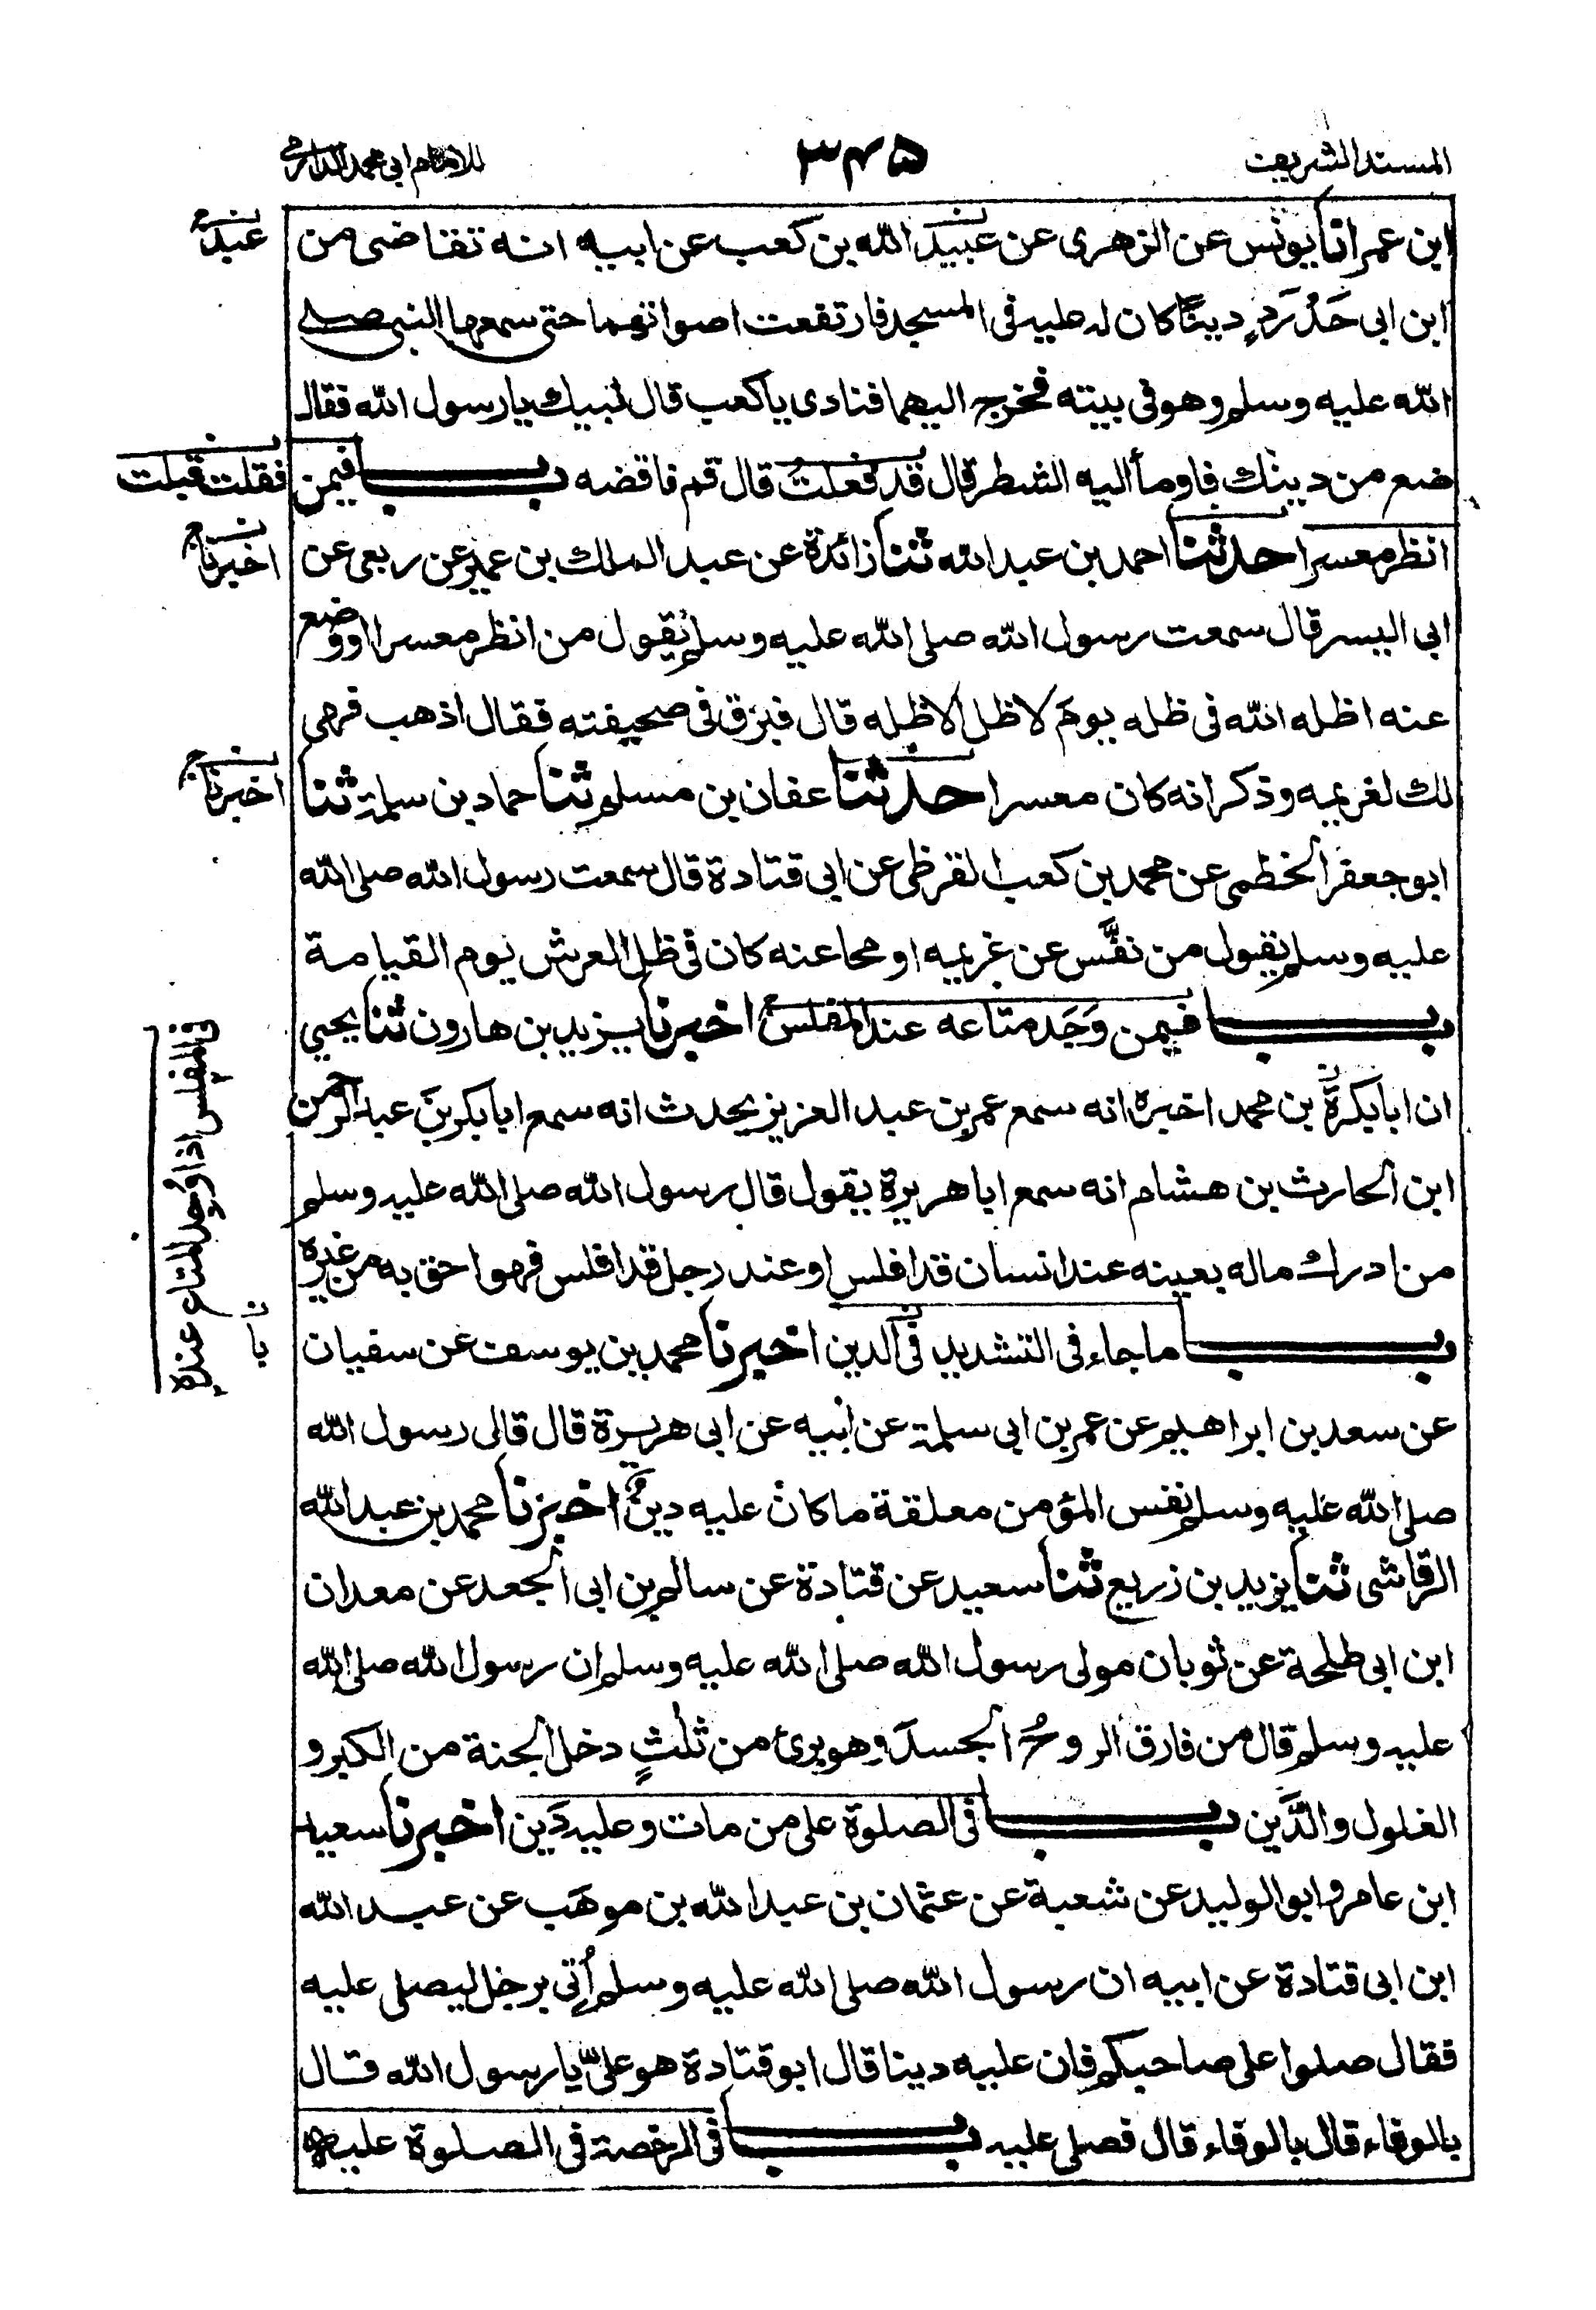 المسند الشريف
٣٤٥
للامام ابي محمد الدارمي
ابن عمر انا يونس عن الزهرى عن عبيد الله بن كعب عن ابيه انه تقاضى من
عبد
ابن ابى حَدْرَدٍ دينًا كان له عليه فى المسجد فارتفعت اصواتهما حتى سمعها النبى صلى
الله عليه وسلم وهو فى بيته فخرج اليهما فنادى يا كعب قال لبيك يا رسول الله فقال
ضع من دينك فاومأ اليه الشطر قال قد فعلتُ قال قم فاقضه بــاب فيمن
فقلت قبلت
انظر معسرا حدثنا احمد بن عبد الله ثنا زائدة عن عبد الملك بن عمير عن ربعى عن
اخبرنا
ابى اليسر قال سمعت رسول الله صلى الله عليه وسلم يقول من انظر معسرا او وضع
عنه اظله الله فى ظله يوم لا ظل الا ظله قال فبزق فى صحيفته فقال اذهب فهى
لك لغريمه وذكر انه كان معسرا حدثنا عفان بن مسلم ثنا حماد بن سلمة ثنا
اخبرنا
ابو جعفر الخطمى عن محمد بن كعب القرظى عن ابى قتادة قال سمعت رسول الله صلى الله
عليه وسلم يقول من نفَّس عن غريمه او محا عنه كان فى ظل العرش يوم القيامة
بــاب فيمن وَجَد متاعه عند المفلس اخبرنا يزيد بن هارون ثنا يحيى
ان ابا بكرة بن محمد اخبره انه سمع عمر بن عبد العزيز يحدث انه سمع ابا بكر بن عبد الرحمن
ابن الحارث بن هشام انه سمع ابا هريرة يقول قال رسول الله صلى الله عليه وسلم
من ادرك ماله بعينه عند انسان قد افلس او عند رجل قد افلس فهو احق به من غيره
فى المفلس اذا وُجد المتاع عنده
بــاب ما جاء فى التشديد فى الدين اخبرنا محمد بن يوسف عن سفيان
عن سعد بن ابراهيم عن عمر بن ابى سلمة عن ابيه عن ابى هريرة قال قال رسول الله
صلى الله عليه وسلم نفس المؤمن معلقة ما كان عليه دينٌ اخبرنا محمد بن عبد الله
الرقاشى ثنا يزيد بن زريع ثنا سعيد عن قتادة عن سالم بن ابى الجعد عن معدان
ابن ابى طلحة عن ثوبان مولى رسول الله صلى الله عليه وسلم ان رسول الله صلى الله
عليه وسلم قال من فارق الروحُ الجسدَ وهو برئ من ثلثٍ دخل الجنة من الكبر و
الغلول والدَّين بــاب فى الصلوة على من مات وعليه دَين اخبرنا سعيد
ابن عامر و ابو الوليد عن شعبة عن عثمان بن عبد الله بن موهَب عن عبد الله
ابن ابى قتادة عن ابيه ان رسول الله صلى الله عليه وسلم اُتى برجل ليصلى عليه
فقال صلوا على صاحبكم فان عليه دينا قال ابو قتادة هو علىّ يا رسول الله قال
بالوفاء قال بالوفاء قال فصلى عليه بــاب فى الرخصة فى الصلوة عليه